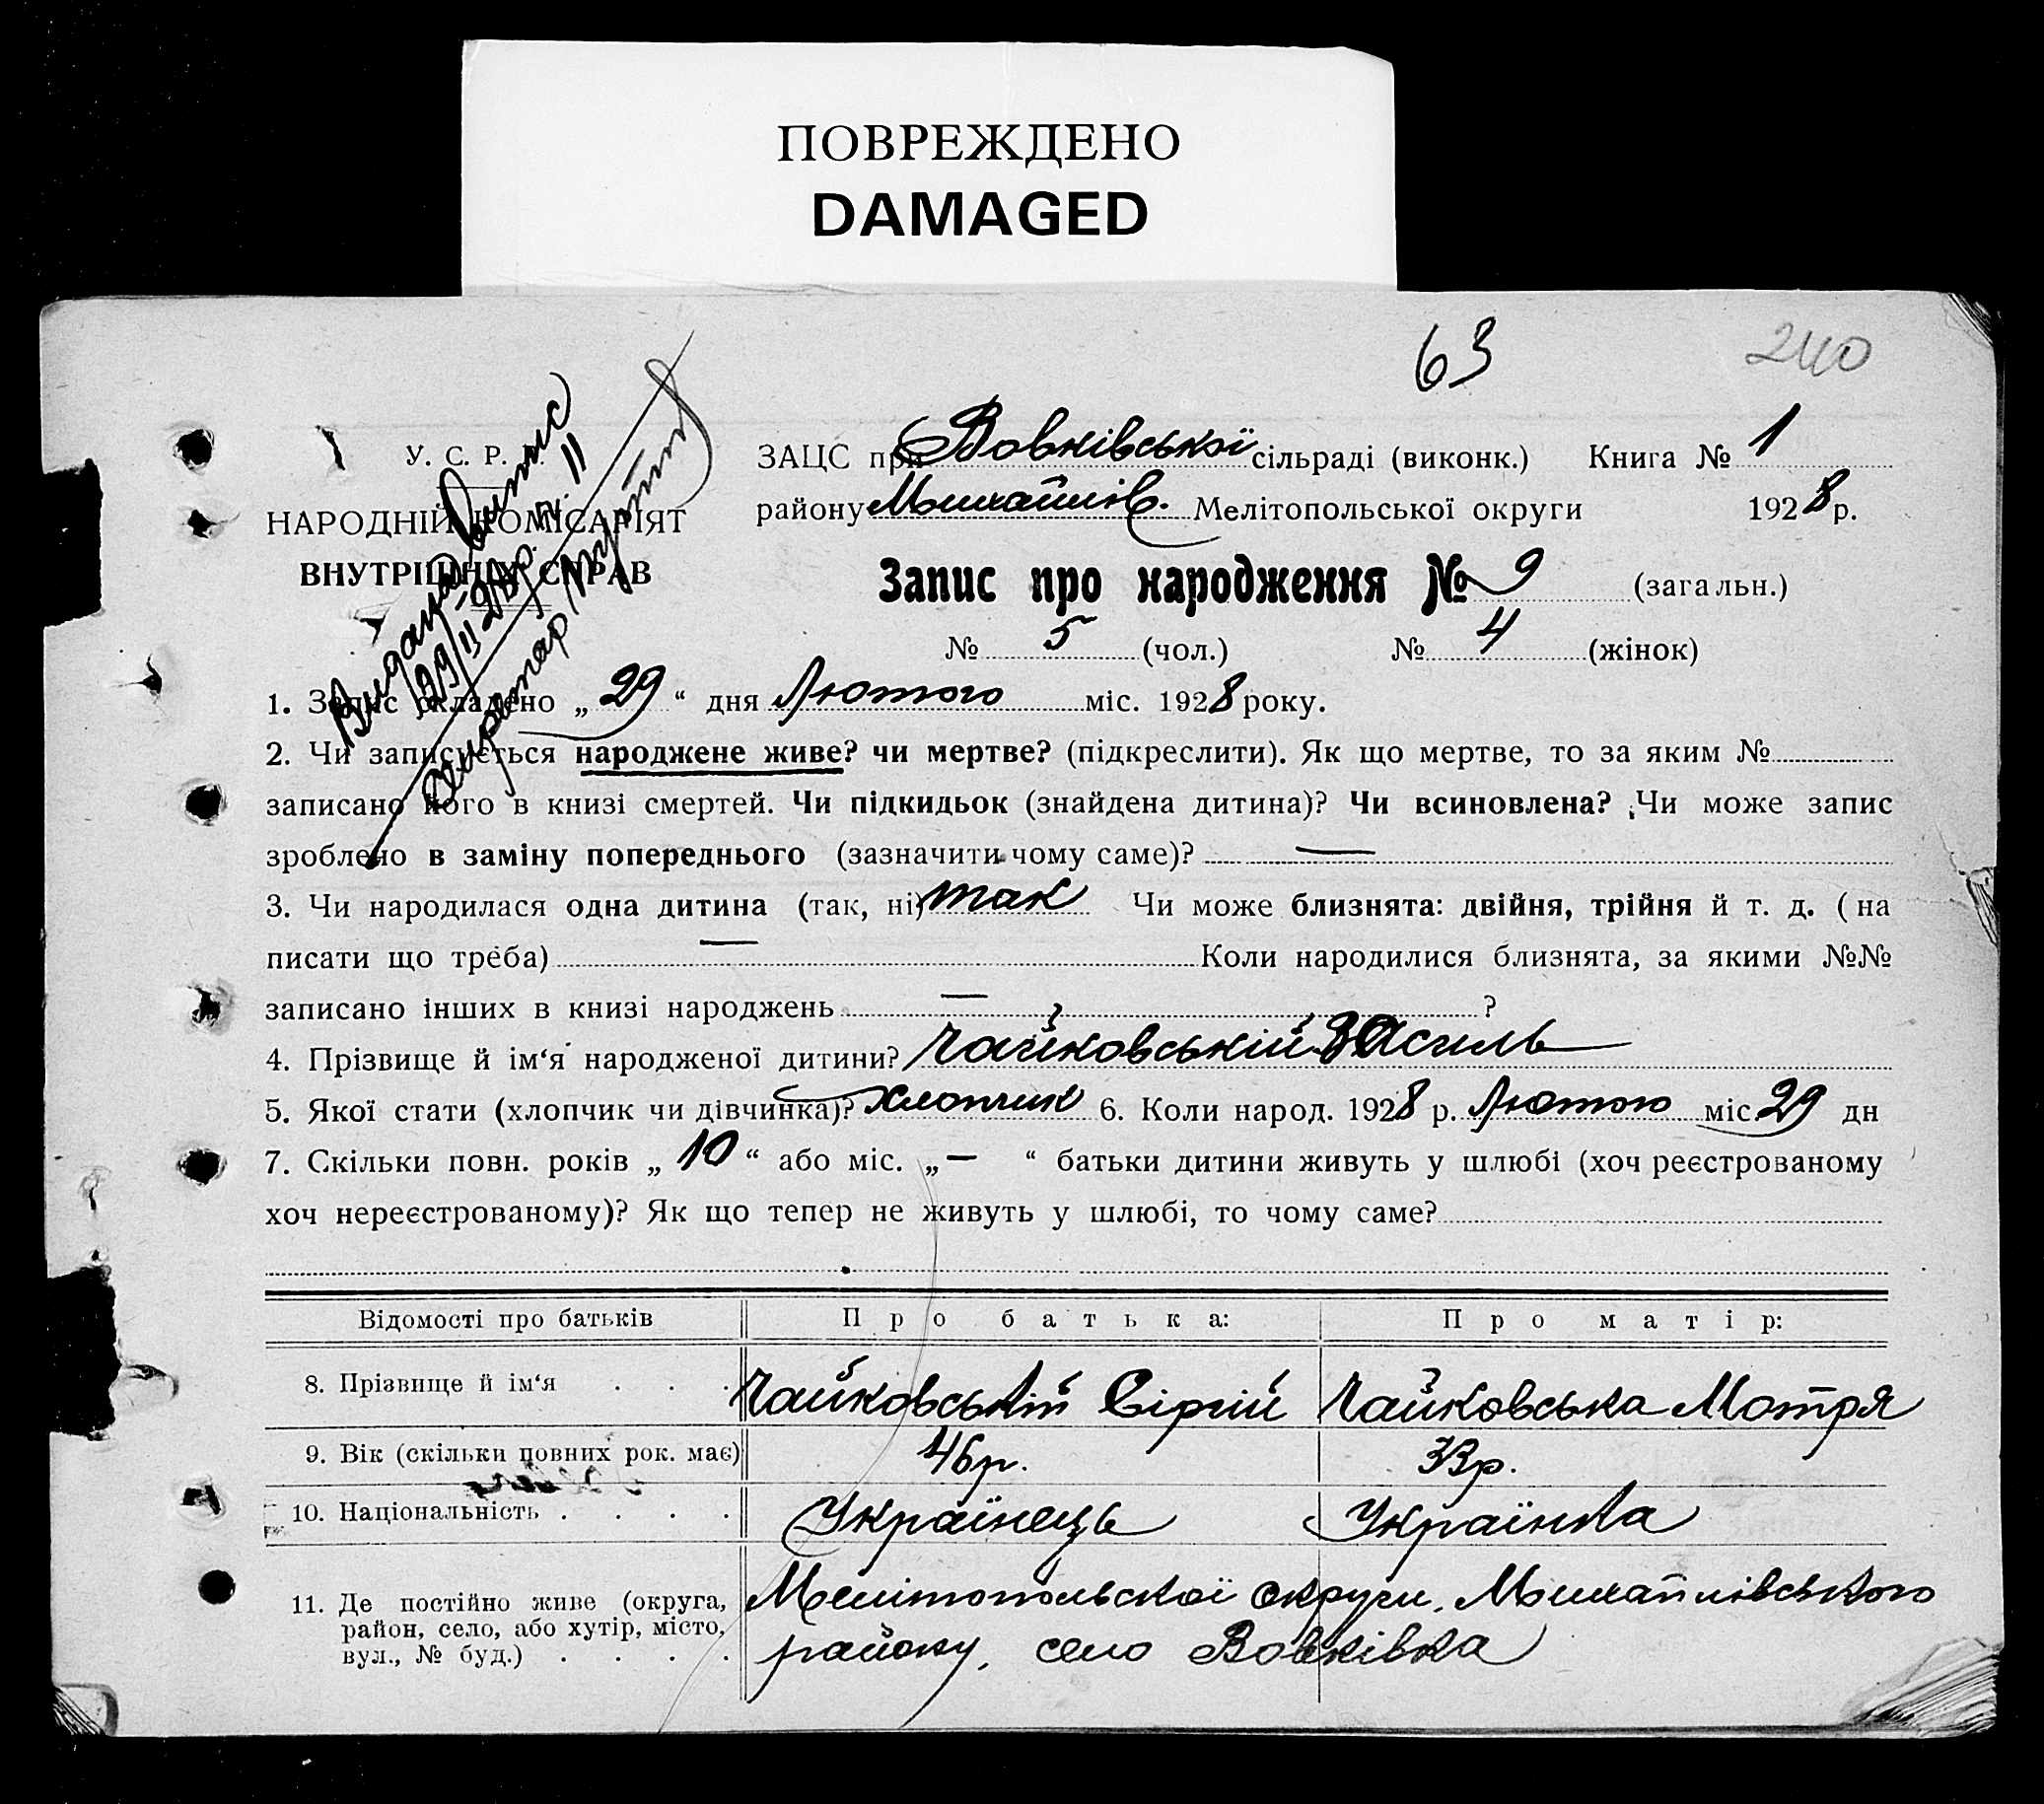 ПОВРЕЖДЕНО
DAMAGED
63
240
У. С. Р. Р.
НАРОДНІЙ КОМІСАРІЯТ
ВНУТРІШНІХ СПРАВ
Видана випис
29/II-28р. №. 11
Секретар
ЗАЦС при Вовківської сільраді (виконк.) Книга № 1
району Михайлів. Мелітопольської округи 1928 р.
Запис про народження № 9 (загальн.)
№ 5 (чол.) № 4 (жінок)
1. Запис складено „ 29 “ дня Лютого міс. 1928 року.
2. Чи записується народжене живе? чи мертве? (підкреслити). Як що мертве, то за яким №
записано його в книзі смертей. Чи підкидьок (знайдена дитина)? Чи всиновлена? Чи може запис
зроблено в заміну попереднього (зазначити чому саме)? —
3. Чи народилася одна дитина (так, ні) так Чи може близнята: двійня, трійня й т. д. (на
писати що треба) — Коли народилися близнята, за якими №№
записано інших в книзі народжень — ?
4. Прізвище й ім‘я народженої дитини? Чайковський Василь
5. Якої стати (хлопчик чи дівчинка)? Хлопчик 6. Коли народ. 1928 р. Лютого міс. 29 дн
7. Скільки повн. років „ 10 “ або міс. „ — “ батьки дитини живуть у шлюбі (хоч реєстрованому
хоч нереєстрованому)? Як що тепер не живуть у шлюбі, то чому саме?
Відомості про батьків Про батька: Про матір:
8. Прізвище й ім‘я . . . Чайковський Сіргій Чайковська Мотря
9. Вік (скільки повних рок. має) 46р. 33р.
10. Національність . . . . Українець Українка
11. Де постійно живе (округа, Мелітопольскої округи, Михайлівського
район, село, або хутір, місто,
вул., № буд.) . . . . району, село Вовківка